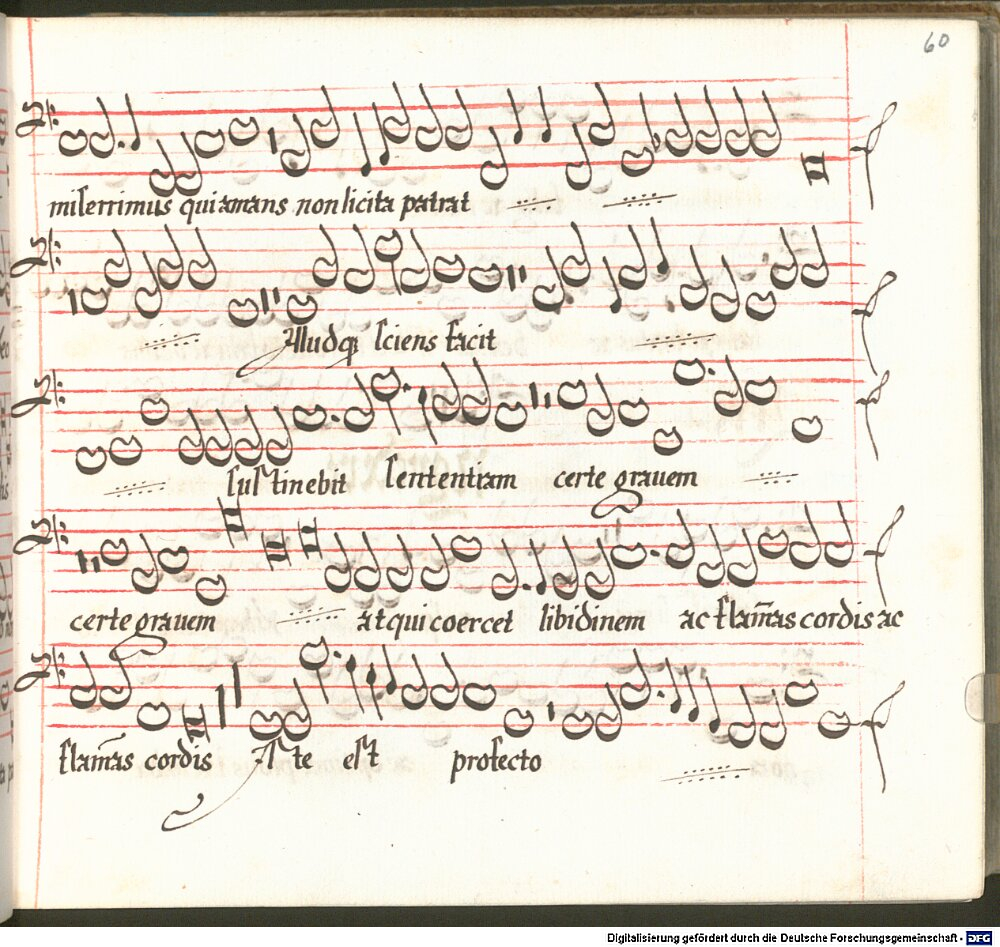 60
miserrimus qui amans non licita patrat
Illudq sciens facit
sustinebit sententiam certe grauem
certe grauem at qui coercet libidinem ac flam̄as cordis ac
flam̄as cordis Is te est profecto
Digitalisierung gefördert durch die Deutsche Forschungsgemeinschaft - DFG